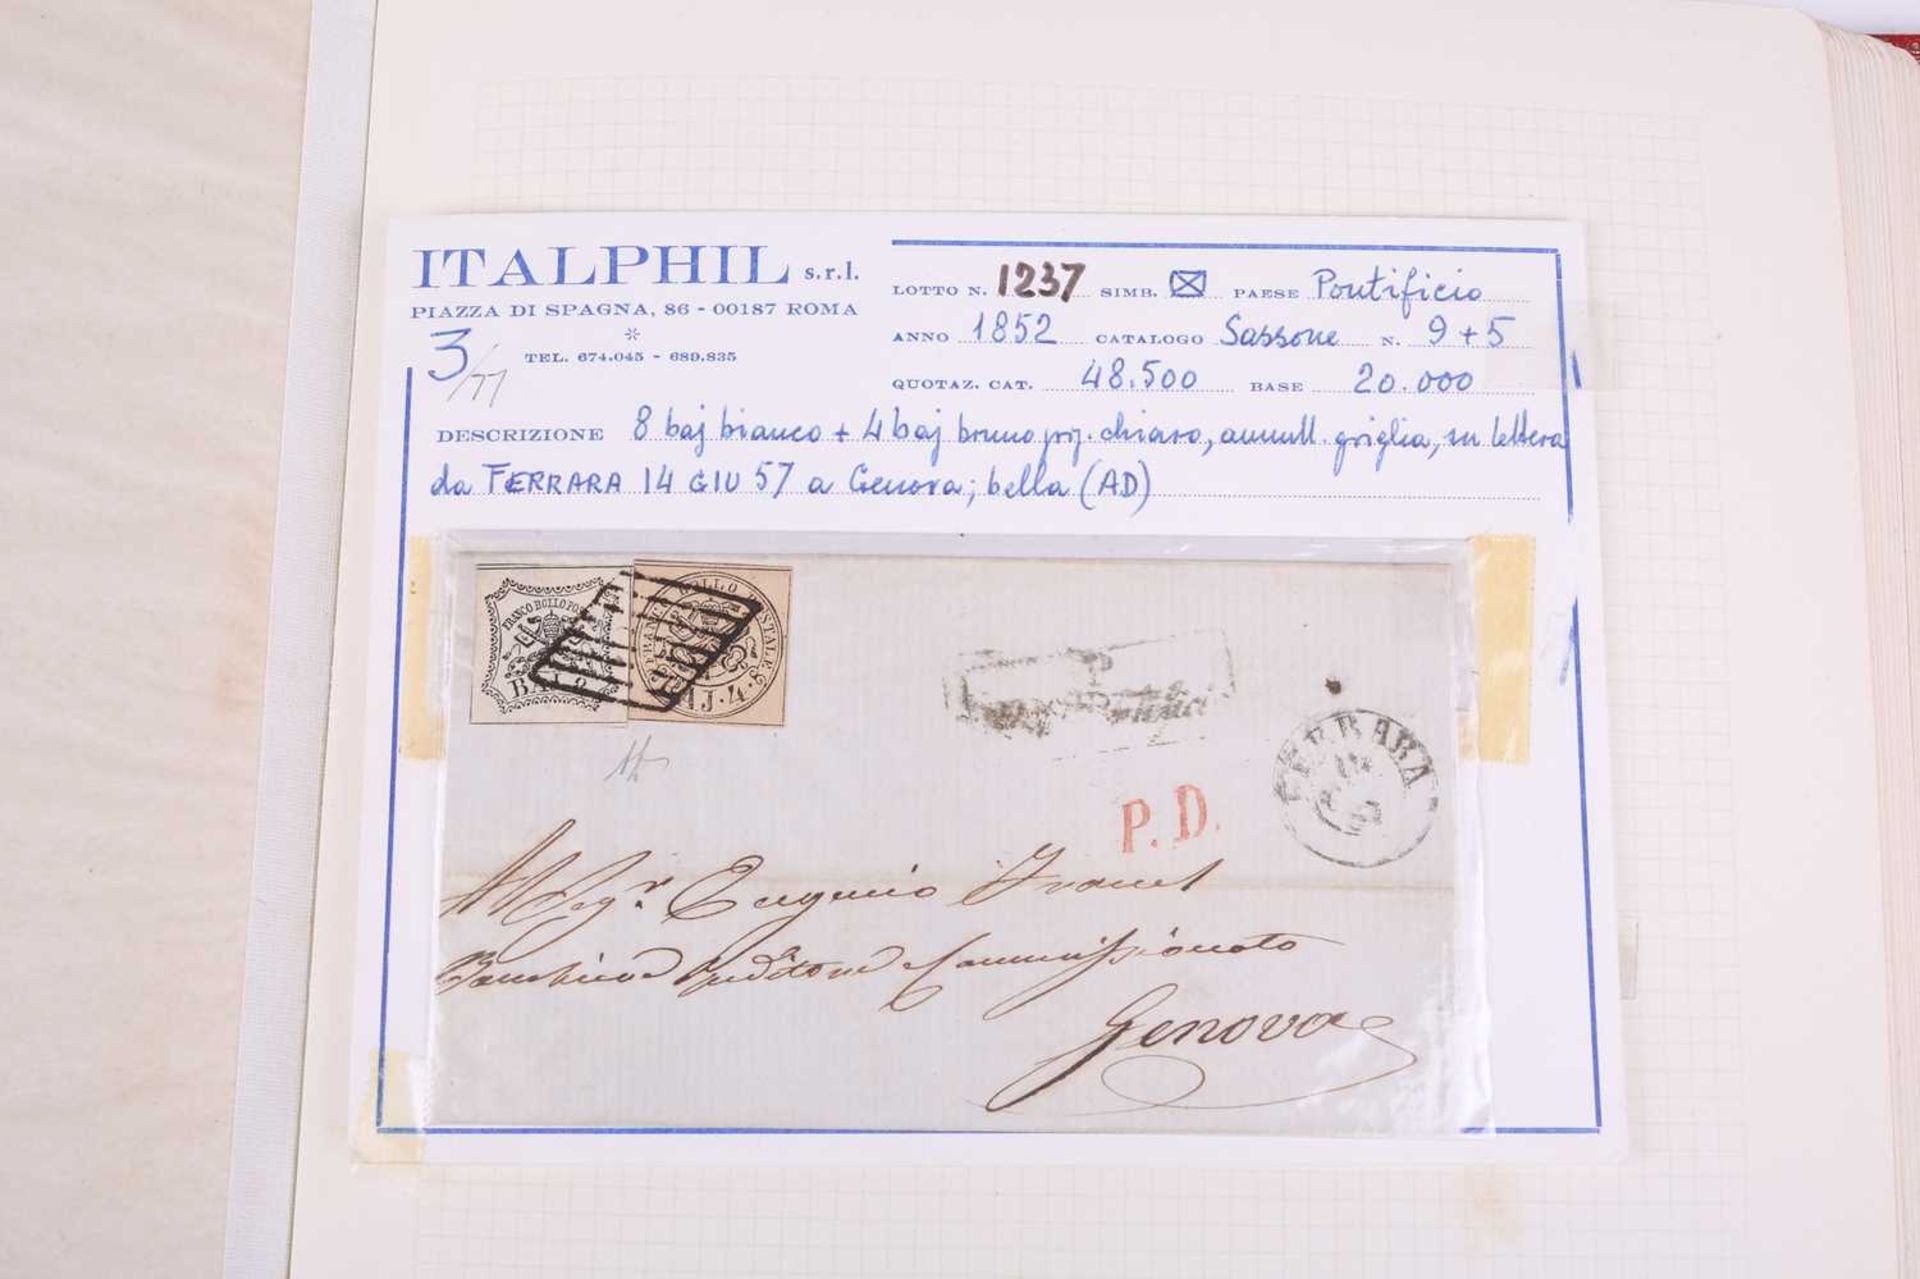 ITALPHIL s.r.l.
PIAZZA DI SPAGNA, 86 - 00187 ROMA
3/77
TEL. 674.045 - 689.835
LOTTO N. 1237 SIMB. PAESE Pontificio
ANNO 1852 CATALOGO Sassone N. 9 + 5
QUOTAZ. CAT. 48.500 BASE 20.000
DESCRIZIONE 8 baj bianco + 4 baj bruno grig. chiaro, annull. griglia, su lettera
da FERRARA 14 GIU 57 a Genova; bella (AD)
FRANCO BOLLO
BAJ. 8
FRANCO BOLLO POSTALE
BAJ. 4
FERRARA
P. D.
Al Segr. Eugenio
Commissionato
Genova